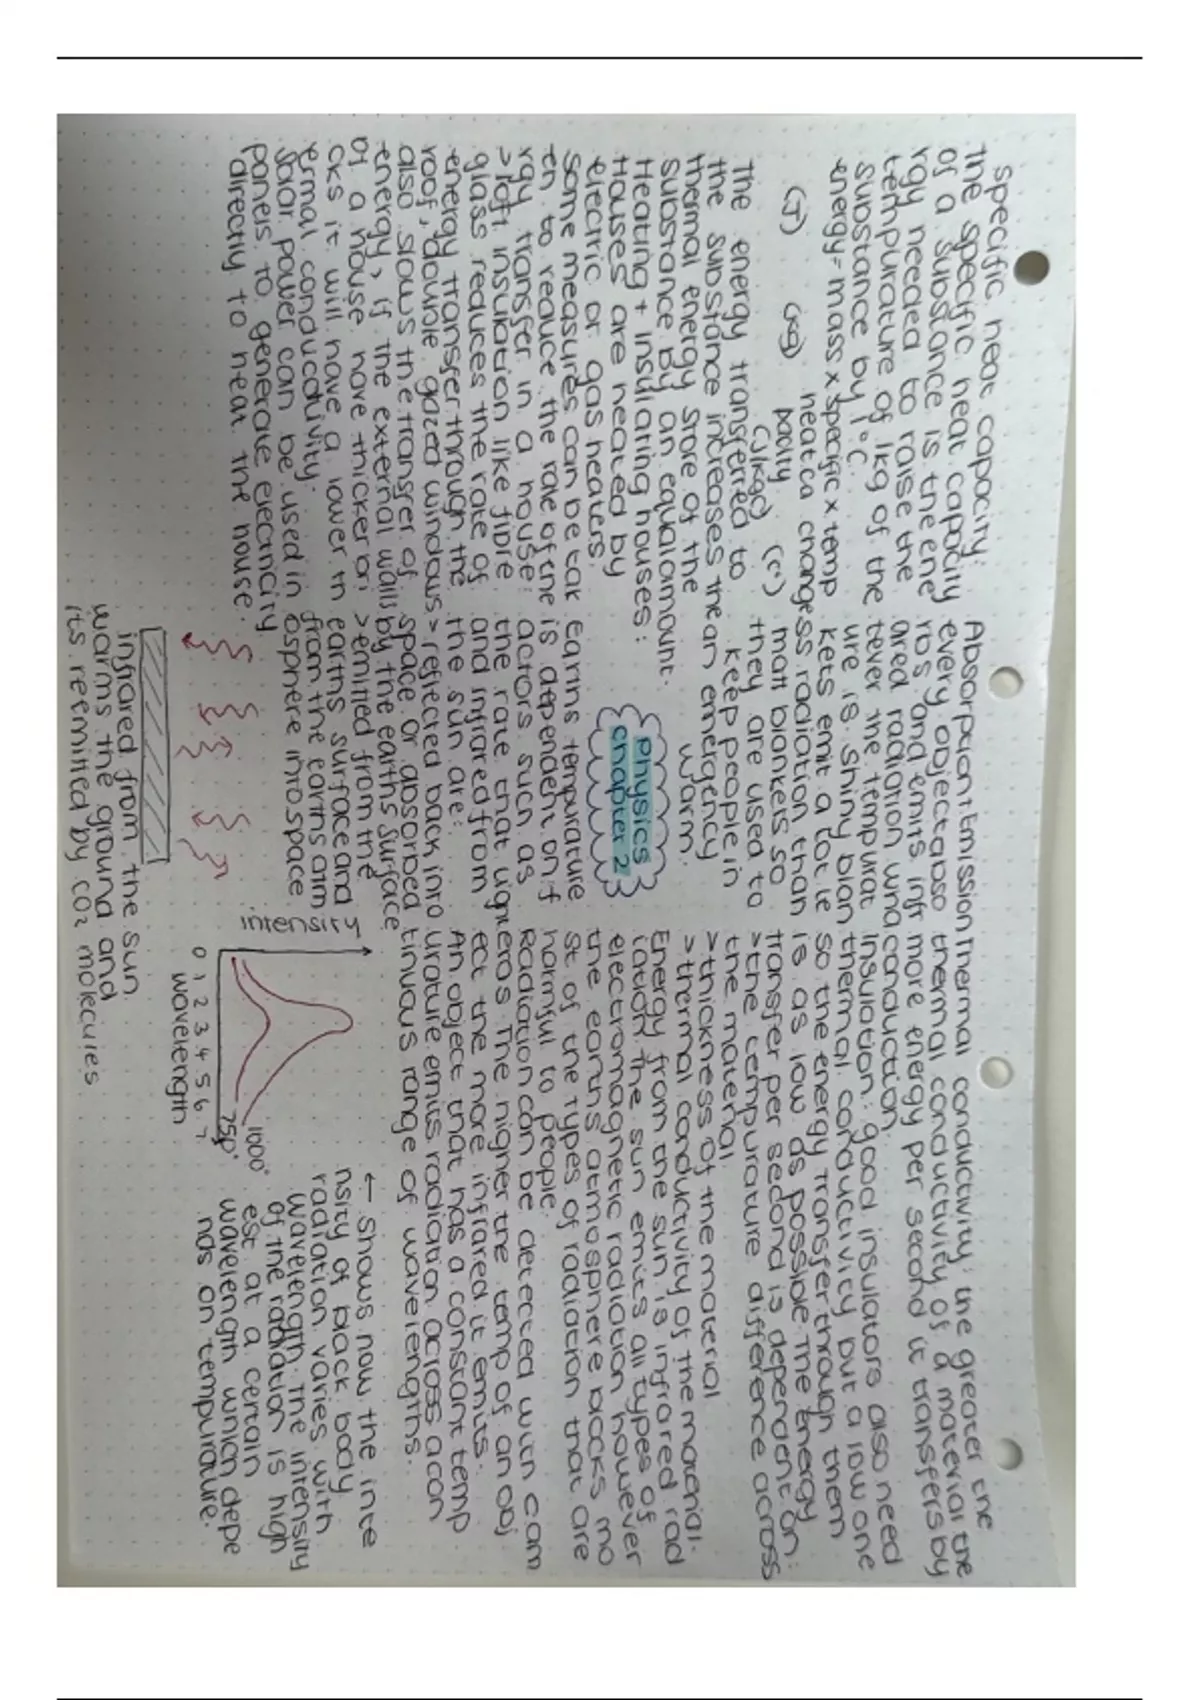 specific heat capacity:
The specific heat capacity
of a substance is the ene
rgy needed to raise the
tempurature of 1kg of the
substance by 1°C.
energy=mass x specific x temp
heat ca change
pacity
(J) (kg) (J/kgc) (c°)
The energy transferred to
the substance increases the
thermal energy store of the
substance by an equal amount.
Heating + Insulating houses:
Houses are heated by
electric or gas heaters.
Some measures can be tak
en to reduce the rate of ene
rgy transfer in a house:
>loft insulation like fibre
glass reduces the rate of
energy transfer through the
roof, double gazed windows
also slows the transfer of
energy, if the external walls
of a house have thicker bri
cks it will have a lower th
ermal conductivity.
Solar power can be used in
panels to generate electricity
directly to heat the house.
Absorption+Emission
every object abso
rbs and emits infr
ared radiation wha
tever the tempurat
ure is. Shiny blan
kets emit a lot le
ss radiation than
matt blankets so
they are used to
keep people in
an emergency
warm.
physics
chapter 2
Earths tempurature
is dependent on f
actors such as
the rate that light
and infrared from
the sun are:
> reflected back into
space or absorbed
by the earths surface
>emitted from the
earths surface and
from the earths atm
osphere into space
infrared from the sun
warms the ground and
its reemitted by CO2 molecules
Thermal conductivity: the greater the
thermal conductivity of a material the
more energy per second it transfers by
conduction.
Insulation: good insulators also need
thermal conductivity but a low one
so the energy transfer through them
is as low as possible. The energy
transfer per second is dependent on:
>the tempurature difference across
the material.
>thickness of the material
>thermal conductivity of the material.
Energy from the sun is infrared rad
iation. The sun emits all types of
electromagnetic radiation however
the earths atmosphere blocks mo
st of the types of radiation that are
harmful to people.
Radiation can be detected with cam
eras. The higher the temp of an obj
ect the more infrared it emits.
An object that has a constant temp
urature emits radiation across a con
tinuous range of wavelengths.
intensity
0 1 2 3 4 5 6 7
wavelength
1000°
750°
← shows how the inte
nsity of black body
radiation varies with
wavelength. The intensity
of the radiation is high
est at a certain
wavelength which depe
nds on tempurature.